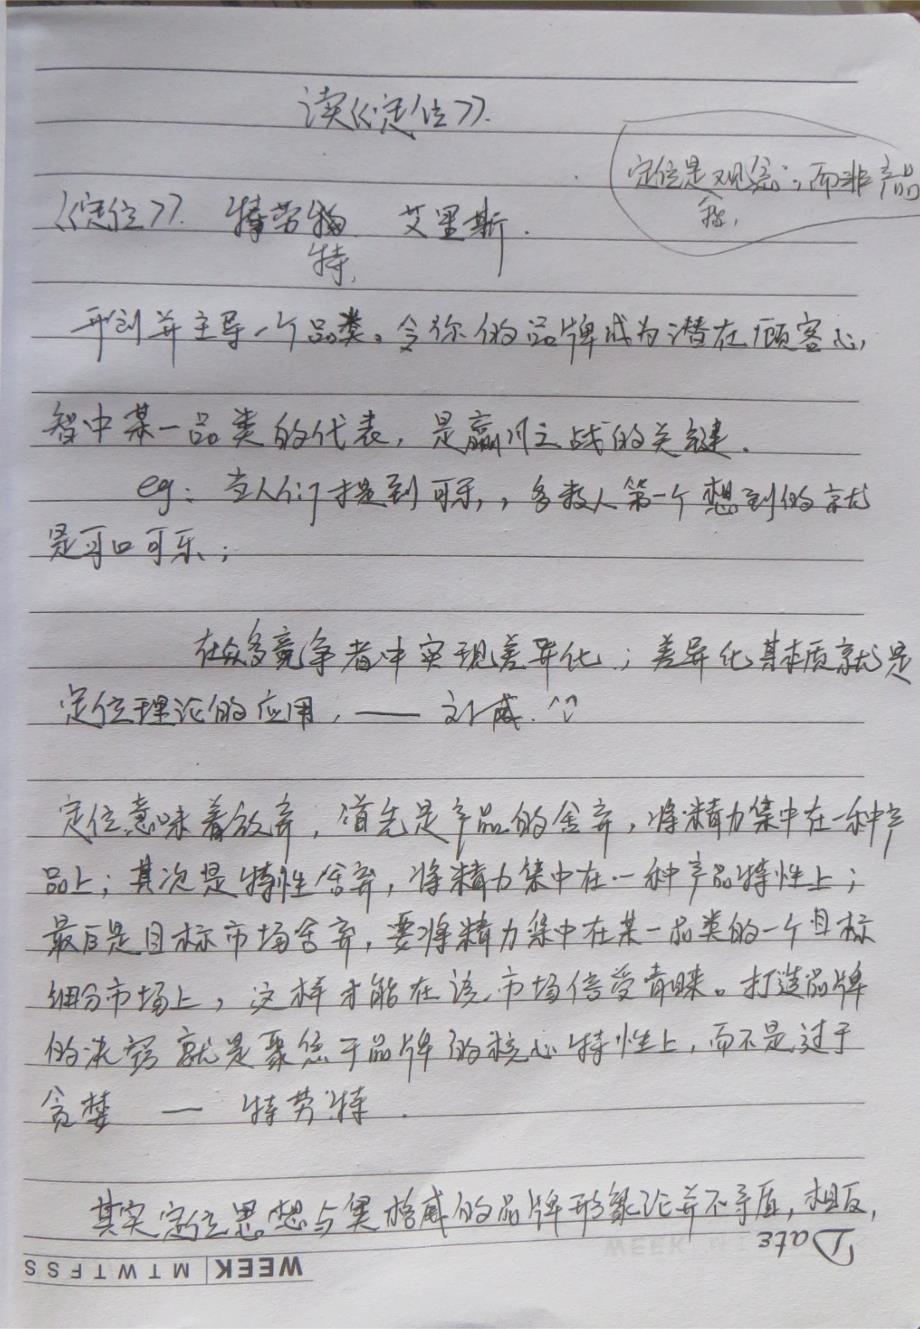 读《定位》.
定位是观念；而非产品
念.
《定位》. 特劳 艾里斯.
特.
开创并主导一个品类。令你的品牌成为潜在顾客心
智中某一品类的代表，是赢得之战的关键.
eg：当人们提到可乐，，多数人第一个想到的就
是可口可乐；
在众多竞争者中实现差异化；差异化其本质就是
定位理论的应用. —— 刘威.
定位意味着放弃，首先是产品的舍弃，将精力集中在一种产
品上；其次是特性舍弃，将精力集中在一种产品特性上；
最后是目标市场舍弃，要将精力集中在某一品类的一个目标
细分市场上，这样才能在该市场倍受青睐。打造品牌
的决窍就是聚焦于品牌的核心特性上，而不是过于
贪婪 — 特劳特.
其实定位思想与奥格威的品牌形象论并不矛盾，相反，
Date
WEEK M T W T F S S